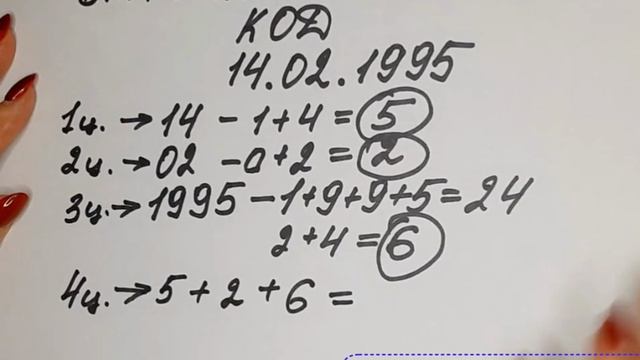 КОД
14.02.1995
1ц. → 14 – 1+4 = 5
2ц. → 02 – 0+2 = 2
3ц. → 1995 – 1+9+9+5 = 24
2+4 = 6
4ц. → 5 + 2 + 6 =